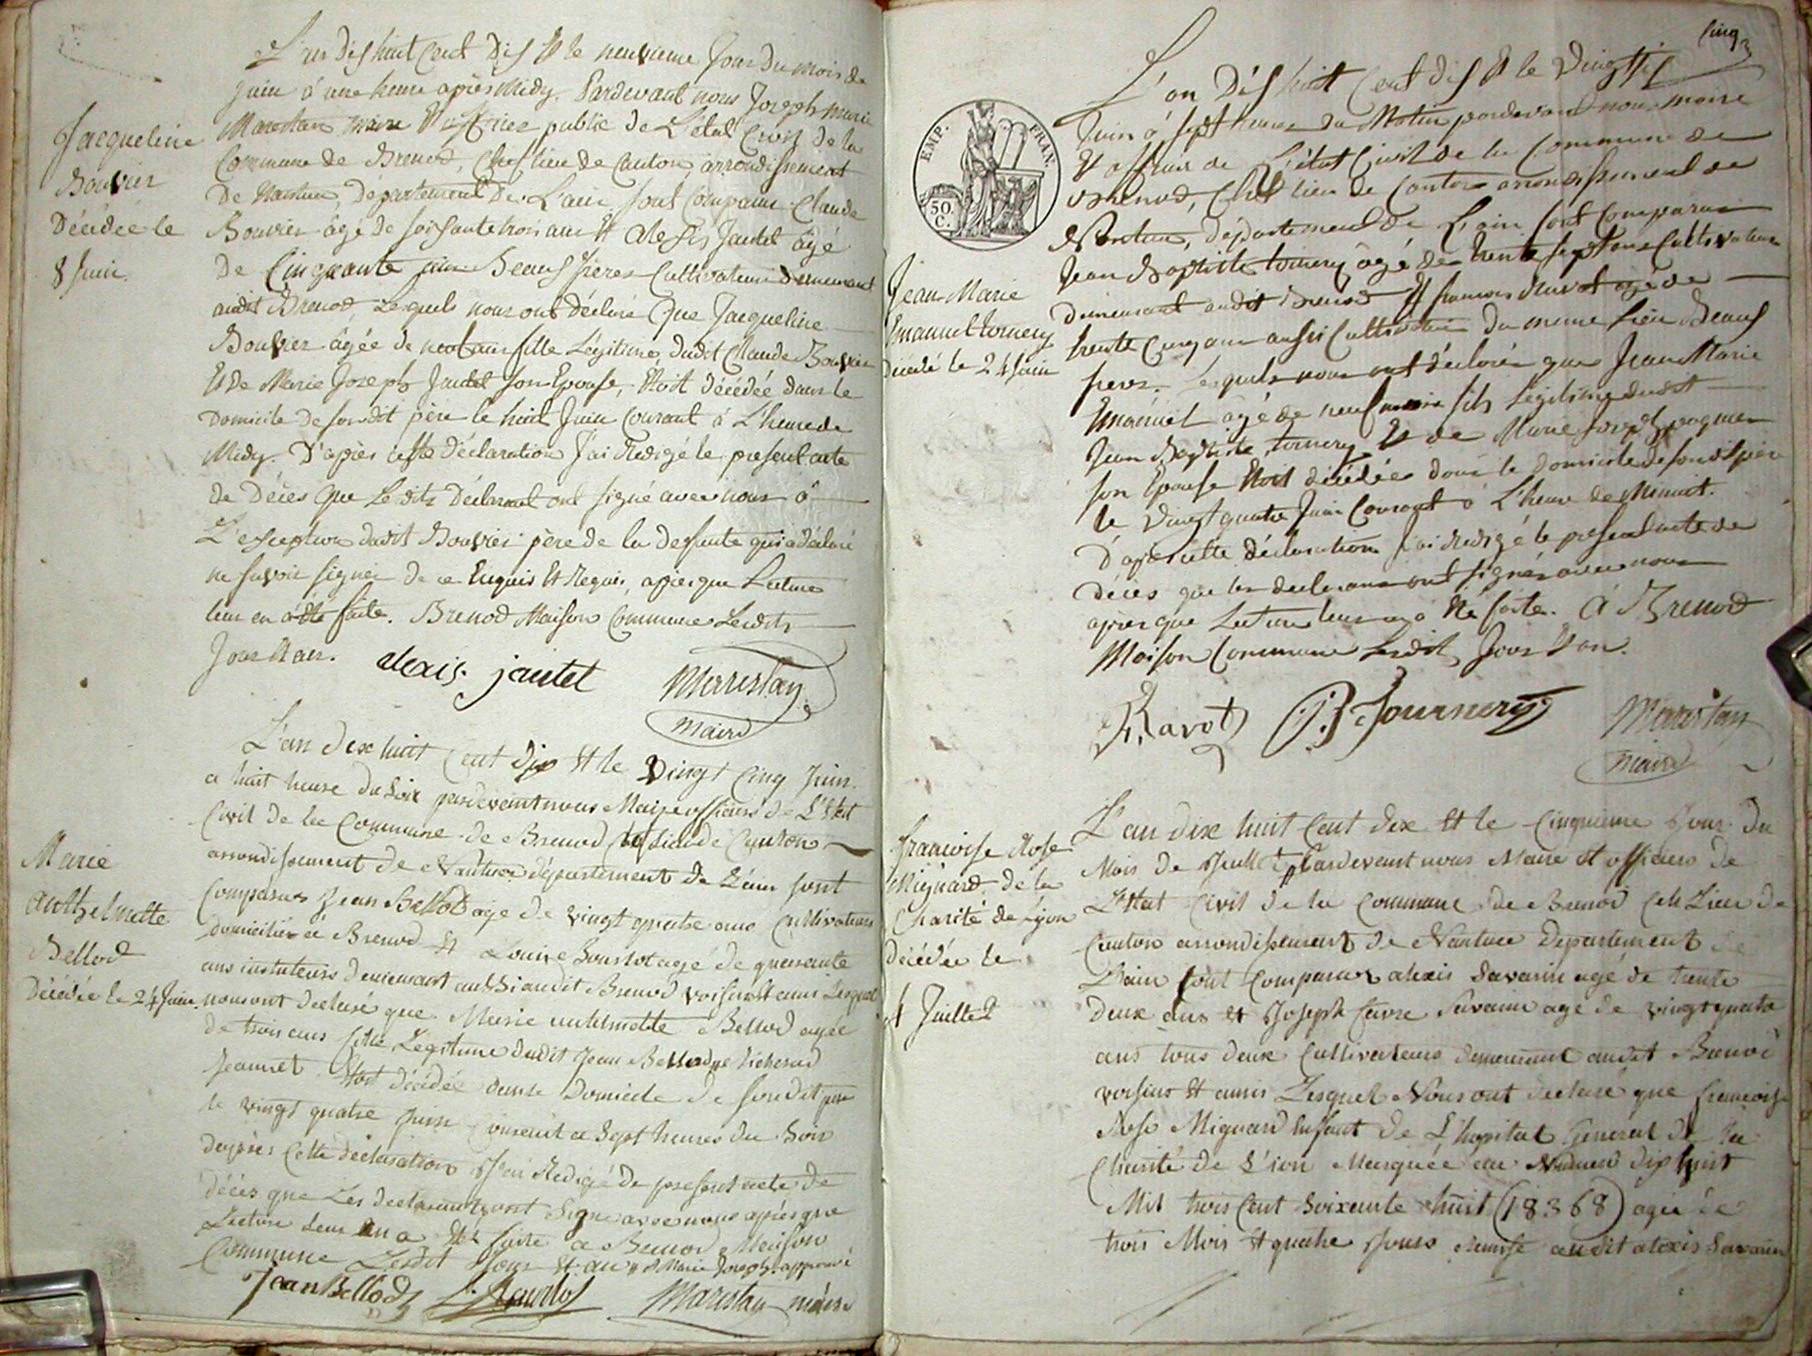 L'an dishuit Cent Dis Et le neuvieme Jour Du mois de
Juin à une heure après Midy. Pardevant nous Joseph Marie
Marestan maire Et officier public de L'état Civil de la
Commune de Brenod, Chef lieu de Canton, arrondissement
De Nantua, Département De L'ain sont Comparus Claude
Bouvier âgé de soissante trois ans Et Alexis Jantet âgé
De Cinquante ans Beaufs freres Cultivateurs demeurant
audit Brenod, Lesquels nous ont Déclaré Que Jacqueline
Bouvier âgée de neuf ans fille Légitime dudit Claude Bouvier
Et De Marie Joseph Jantet son Epouse, Etoit décédée dans le
Domicile De son dit père le huit Juin Courant à L'heure de
Midy. D'après cette Déclaration J'ai Redigé le présent acte
de Décès Que Le dits Déclarant ont signé avec nous à
L'exception dudit Bouvier père de la deffunte qui a déclaré
ne savoir signer de ce Enquis Et Requis, après que Lecture
leur en a été faite. Brenod Maison Commune Lesdits
Jour Et an.
alexis jantet
Marestan
maire
Jacqueline
Bouvier
Décédée le
8 Juin.
L'an dix huit Cent dix Et le vingt Cinq Juin
a huit heure du Soir pardevant nous Maire officiers de L'Etat
Civil de la Commune de Brenod Chef lieu de Canton
arrondissement de Nantua département de L'ain sont
Comparus Jean Bellod age de vingt quatre ans Cultivateur
domicilié a Brenod Et Louis age de quarante
ans instituteurs demeurant aussi audit Brenod voisins Et amis Lesquel
nous ont declaré que Marie anthelmette Bellod agée
de trois ans fille Legitime dudit Jean Bellod
Jeannet Etoit décédée dans le Domicile de son dit pere
le vingt quatre Juin Courant a Sept heures du Soir
dapres Cette déclaration J'ai Redigé Le present acte de
décés que Les declarant ont Signé avec nous apres que
Lecture Leur En a été faite a Brenod Maison
Commune Ledit Jour Et an Marie Joseph approuvé
Jean Bellod
Marestan maire
Marie
anthelmette
Bellod
Décédée le 24 Juin
Cinq
L'an Dishuit Cent dis Et le Vingt six
Juin à sept heures du Matin pardevant nous maire
Et officier de L'état Civil de la Commune de
Brenod, Chef lieu de Canton arrondissement de
Nantua, département de L'ain sont Comparus
Jean Baptiste Tournery âgé de trente sept ans Cultivateur
demeurant audit Brenod Et francois Ravot âgé de
trente Cinq ans aussi Cultivateur du meme Lieu Beaufs
freres. Lesquels nous ont déclaré que Jean Marie
Emanuel âgé de neuf mois fils Légitime dudit
Jean Baptiste Tournery Et de Marie Joseph
son Epouse Etoit décédée dans le Domicile de son dit père
le Vingt quatre Juin Courant à L'heure de Minuit.
D'après cette déclaration J'ai Redigé le present acte de
décès que les déclarans ont signés avec nous
après que Lecture leur en a été faite. à Brenod
Maison Commune Lesdits Jour Et an.
Ravot
Tournery
Marestan
maire
EMP. FRAN.
50. C.
Jean Marie
Emanuel Tournery
Décédé le 24 Juin
L'an dix huit Cent dix Et le Cinquieme Jour du
Mois de Juillet Pardevant nous Maire Et officiers de
L'Etat Civil de la Commune de Brenod Chef Lieu de
Canton arrondissement de Nantua Departement de
L'ain sont Comparus alexis Savarin agé de trente
Deux ans Et Joseph favre Savarin agé de vingt quatre
ans tous deux Cultivateurs demeurant audit Brenod
voisins Et amis Lesquel Nous ont declaré que francoise
Rose Mignard Enfant de L'hopital General de La
Charité de L'ion Marquée au Numero dix huit
Mil trois Cent Soixante huit (18368) agée de
trois Mois Et quatre Jours Remise audit alexis Savarin
francoise Rose
Mignard de la
Charité de Lyon
Décédée le
4 Juillet